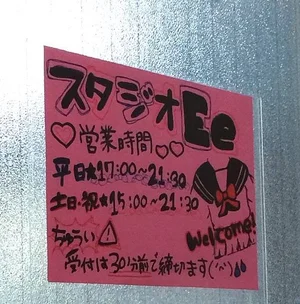 スタジオEe
♡営業時間♡♡
平日★17:00〜21:30
土日・祝★15:00〜21:30
ちゅうい⚠
受付は30分前で締切ます(´^`)
Welcome!